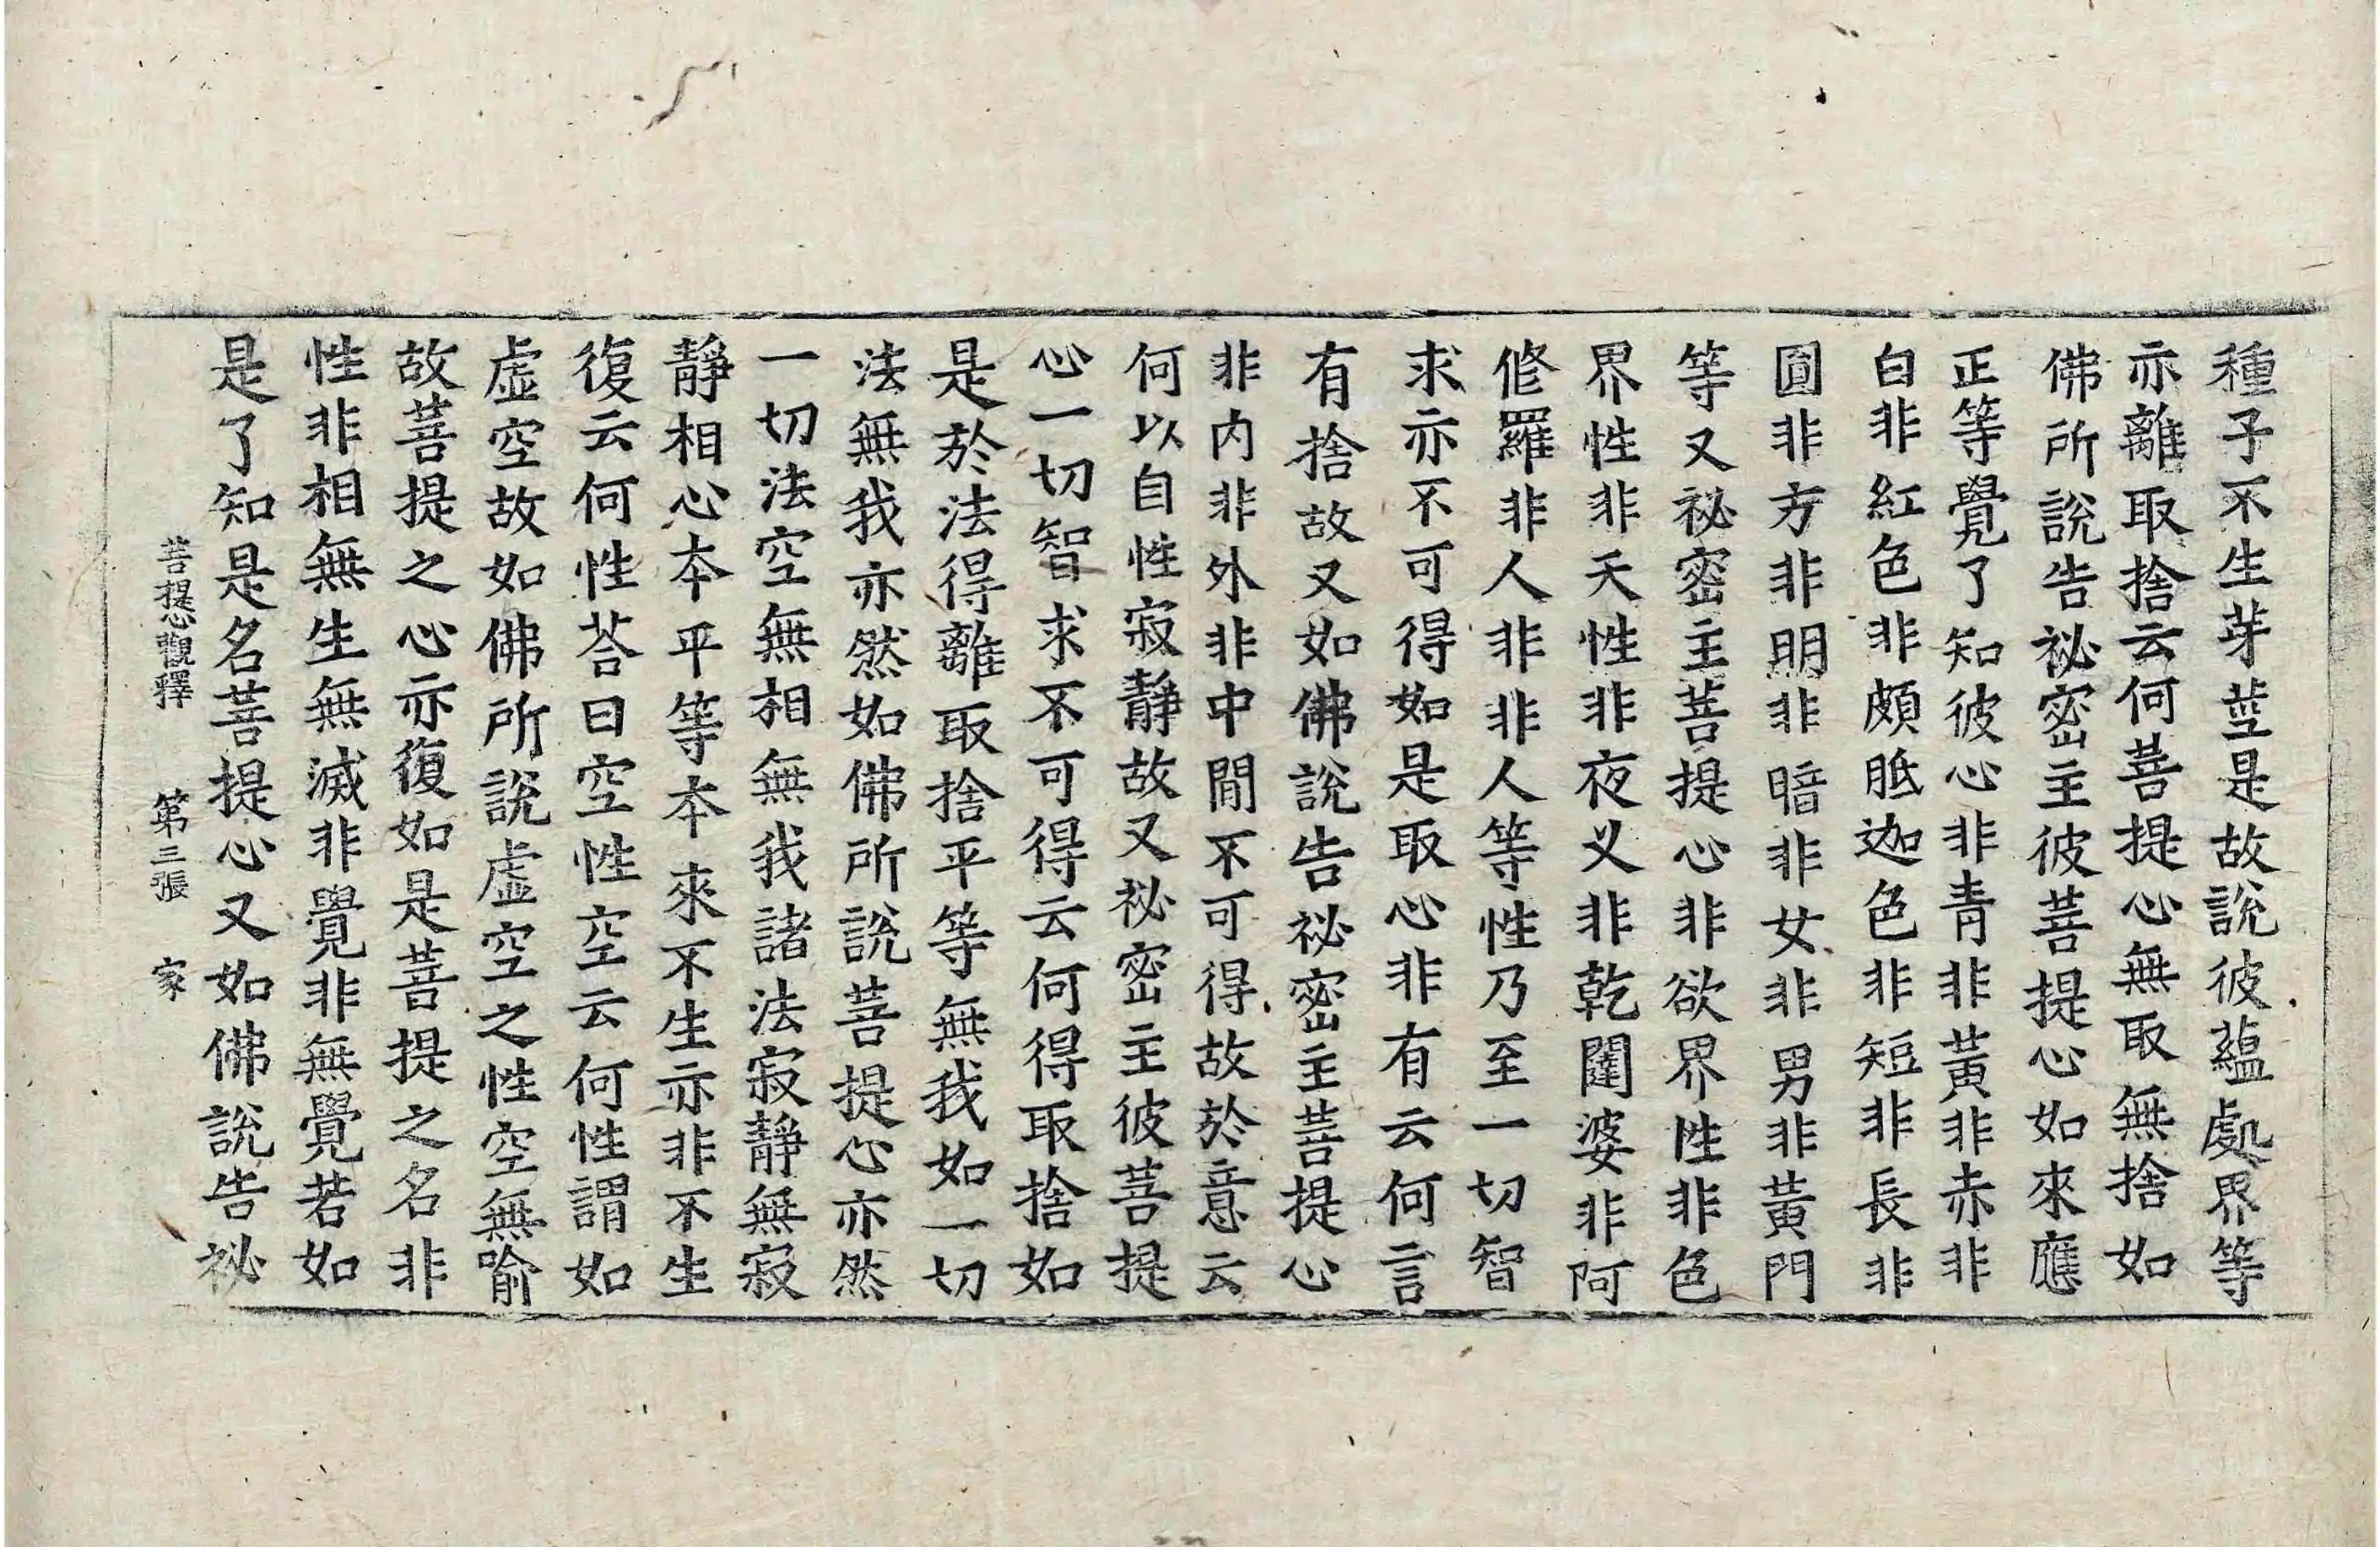 種子不生芽莖是故說彼蘊處界等
亦離取捨云何菩提心無取無捨如
佛所說告祕密主彼菩提心如來應
正等覺了知彼心非青非黃非赤非
白非紅色非頗胝迦色非短非長非
圓非方非明非暗非女非男非黃門
等又祕密主菩提心非欲界性非色
界性非天性非夜叉非乾闥婆非阿
修羅非人非非人等性乃至一切智
求亦不可得如是取心非有云何言
有捨故又如佛說告祕密主菩提心
非內非外非中間不可得故於意云
何以自性寂靜故又祕密主彼菩提
心一切智求不可得云何得取捨如
是於法得離取捨平等無我如一切
法無我亦然如佛所說菩提心亦然
一切法空無相無我諸法寂靜無寂
靜相心本平等本來不生亦非不生
復云何性荅曰空性空云何性謂如
虛空故如佛所說虛空之性空無喻
故菩提之心亦復如是菩提之名非
性非相無生無滅非覺非無覺若如
是了知是名菩提心又如佛說告祕
菩提心觀釋 第三張 家